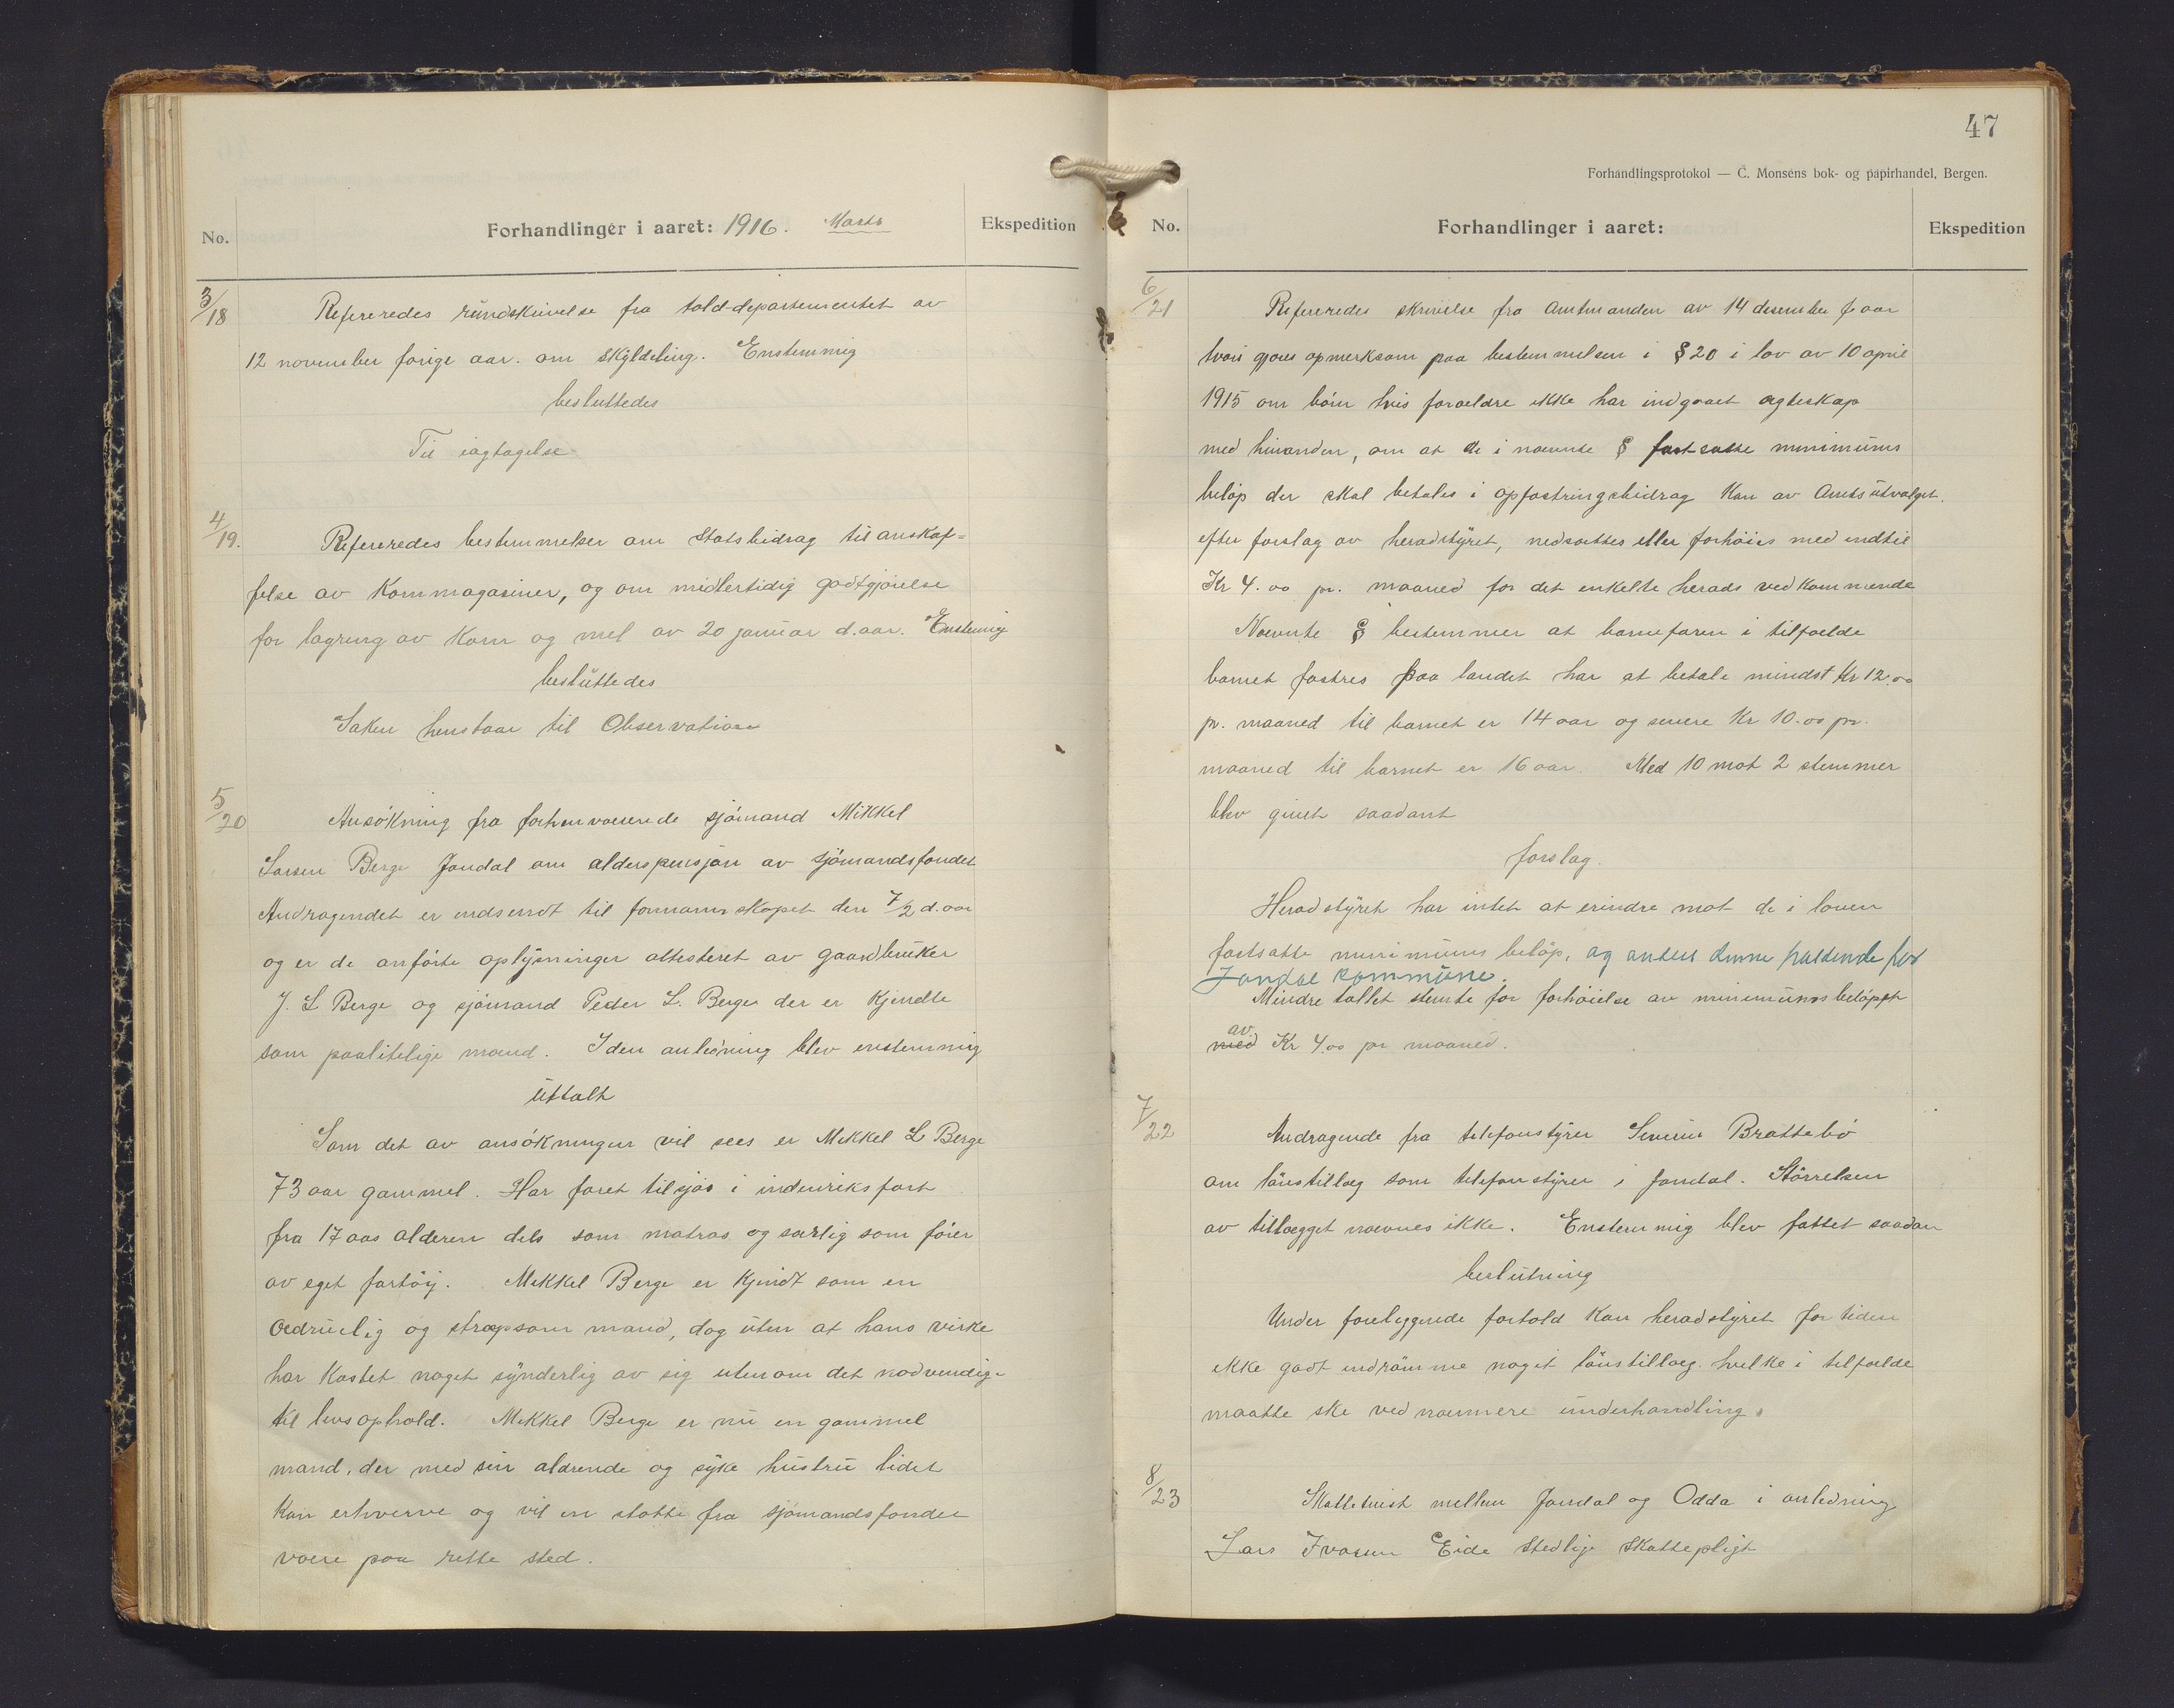 No.
Forhandlinger i aaret: 1916. Marts
Ekspedition
3/18
Refereredes rundskrivelse fra told-departementet av
12 november forige aar. om skyldeling. Enstemmig
besluttedes
Til iagtagelse
4/19.
Refereredes bestemmelser om Statsbidrag til anskaf=
felse av Kornmagasiner, og om midlertidig godtgjörelse
for lagring av Korn og mel av 20 januar d.aar. Enstemig
besluttedes
Saken henstaar til Observation
5/20
Ansökning fra forhenværende sjömand Mikkel
Larsen Berge Jondal om alderspensjon av sjömandsfondet
Andragendet er indsendt til formannskapet den 7/2 d.aar
og er de anförte oplysninger attesteret av gaardbruker
J. L Berge og sjömand Peder L. Berge der er Kjendte
som paalitelige mænd. I den anledning blev enstemmig
uttalt
Som det av ansökningen vil sees er Mikkel L Berge
73 aar gammel. Har faret tilsjös i indenriksfart
fra 17 aars alderen dels som matros og særlig som förer
av eget fartöi. Mikkel Berge er Kjendt som en
ædruelig og stræpsom mand, dog uten at hans virke
har Kastet noget synderlig av sig utenom det nödvendige
til livsophold. Mikkel Berge er nu en gammel
mand, der med sin aldrende og syke hustru lidet
Kan erhverve og vil en stötte fra sjömandsfondet
være paa rette sted.
47
Forhandlingsprotokol — C. Monsens bok- og papirhandel, Bergen.
No.
Forhandlinger i aaret:
Ekspedition
6/21
Refereredes skrivelse fra Amtmanden av 14 desember f. aar
hvori gjöres opmerksom paa bestemmelsen i § 20 i lov av 10 april
1915 om börn hvis forældre ikke har indgaaet ægteskap
med hinanden, om at de i nævnte § fastsatte minimums
belöp der skal betales i opfostringsbidrag Kan av Amtsutvalget,
efter forslag av heradstyret, nedsættes eller forhöies med indtil
Kr 4.00 pr. maaned for det enkelte herads vedkommende
Nævnte § bestemmer at barnefaren i tilfælde
barnet fostres paa landet har at betale mindst Kr 12.00
pr. maaned til barnet er 14 aar og senere Kr 10.00 pr.
maaned til barnet er 16 aar. Med 10 mot 2 stemmer
blev givet saadant
forslag.
Heradstyret har intet at erindre mot de i loven
fastsatte minimums belöp, og anser denne passende for
Jondal kommune.
Mindre tallet stemte for forhöielse av minimumsbelöpet
av
med Kr 4.00 pr maaned.
7/22
Andragende fra telefonstyrer Severin Brattebö
om lönstillæg som telefonstyrer i Jondal. Störrelsen
av tillægget nævnes ikke. Enstemmig blev fattet saadan
beslutning
Under foreliggende forhold Kan heradstyret for tiden
ikke godt indrömme noget lönstillæg. hvilke i tilfælde
maatte ske ved nærmere underhandling.
8/23
Skattetvist mellem Jondal og Odda i anledning
Lars Ivarsen Eide stedlige skattepligt